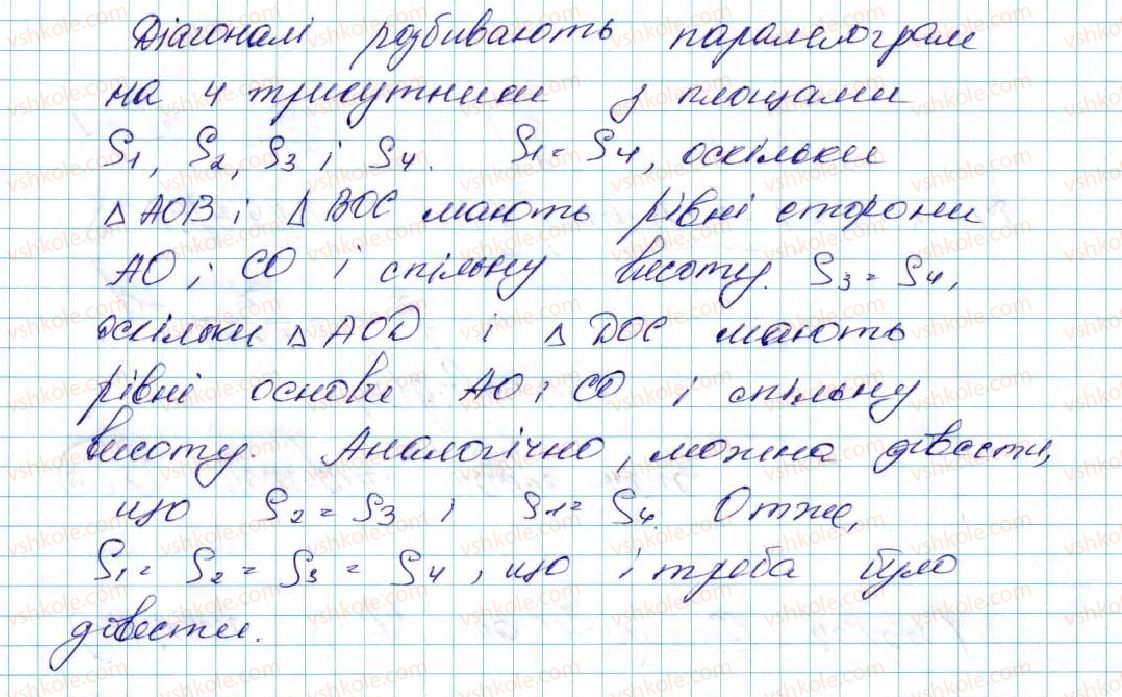 Діагоналі розбивають паралелограм
на 4 трикутники з площами
S1, S2, S3 і S4. S1 = S4, оскільки
△ AOB і △ BOC мають рівні сторони
AO і CO і спільну висоту. S3 = S4,
оскільки △ AOD і △ DOC мають
рівні основи AO і CO і спільну
висоту. Аналогічно, можна довести,
що S2 = S3 і S1 = S4. Отже,
S1 = S2 = S3 = S4, що і треба було
довести.